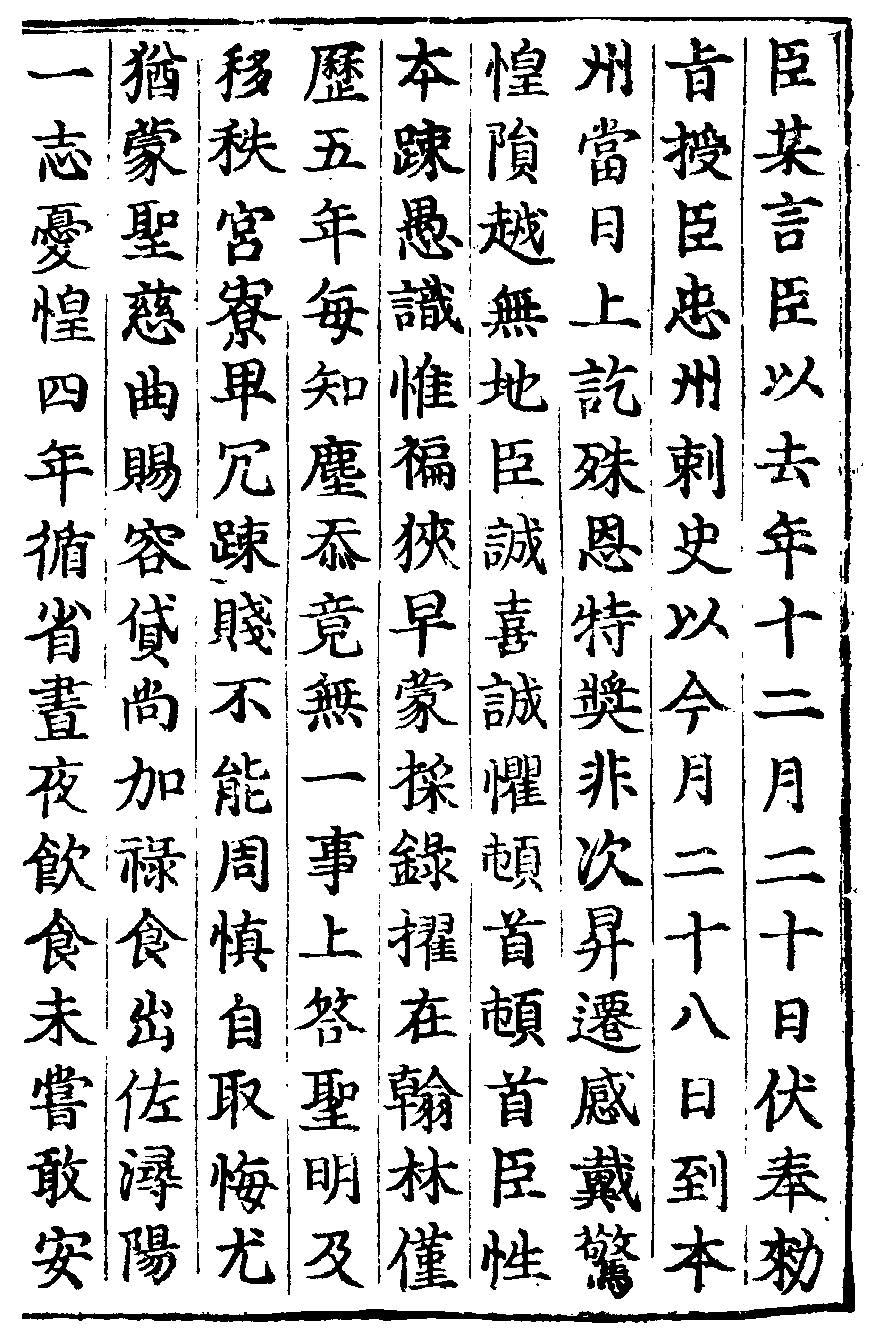 臣某言臣以去年十二月二十日伏奉勑
旨授臣忠州刺史以今月二十八日到本
州當日上訖殊恩特奬非次昇遷感戴驚
惶隕越無地臣誠喜誠懼頓首頓首臣性
本踈愚識惟褊狹早蒙採錄擢在翰林僅
歷五年每知塵忝竟無一事上答聖明及
移秩宮寮卑冗踈賤不能周慎自取悔尤
猶蒙聖慈曲賜容貸尚加祿食出佐潯陽
一志憂惶四年循省晝夜飲食未嘗敢安